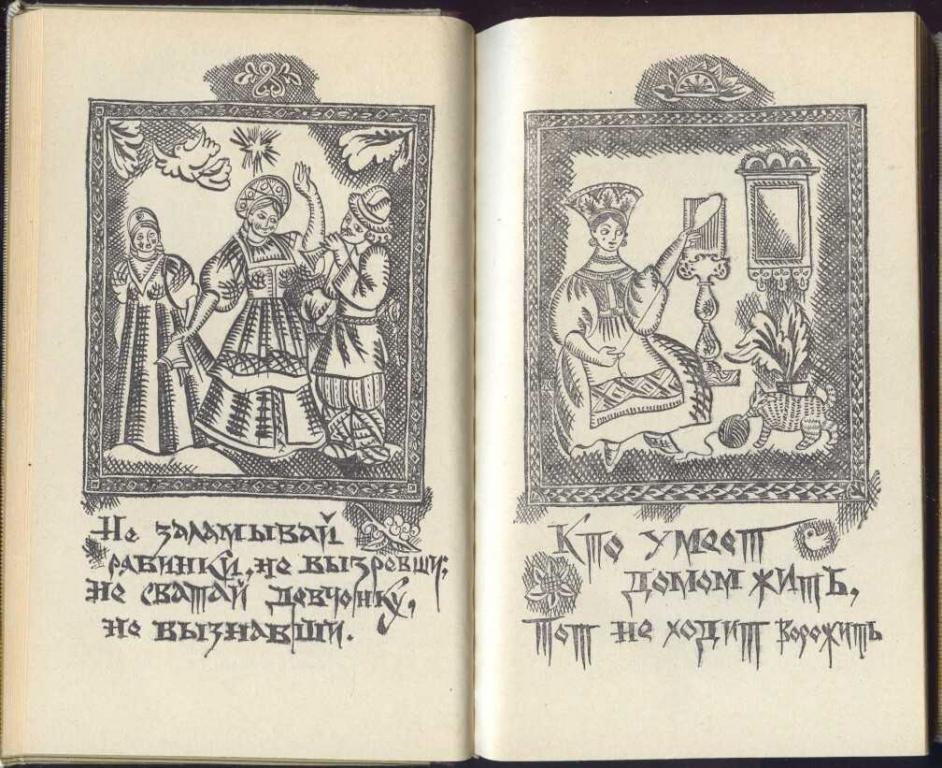 Не заламывай
рабинки, не вызревши;
не сватай девчонку,
не вызнавши.
Кто умеет
домом жить,
тот не ходит ворожить